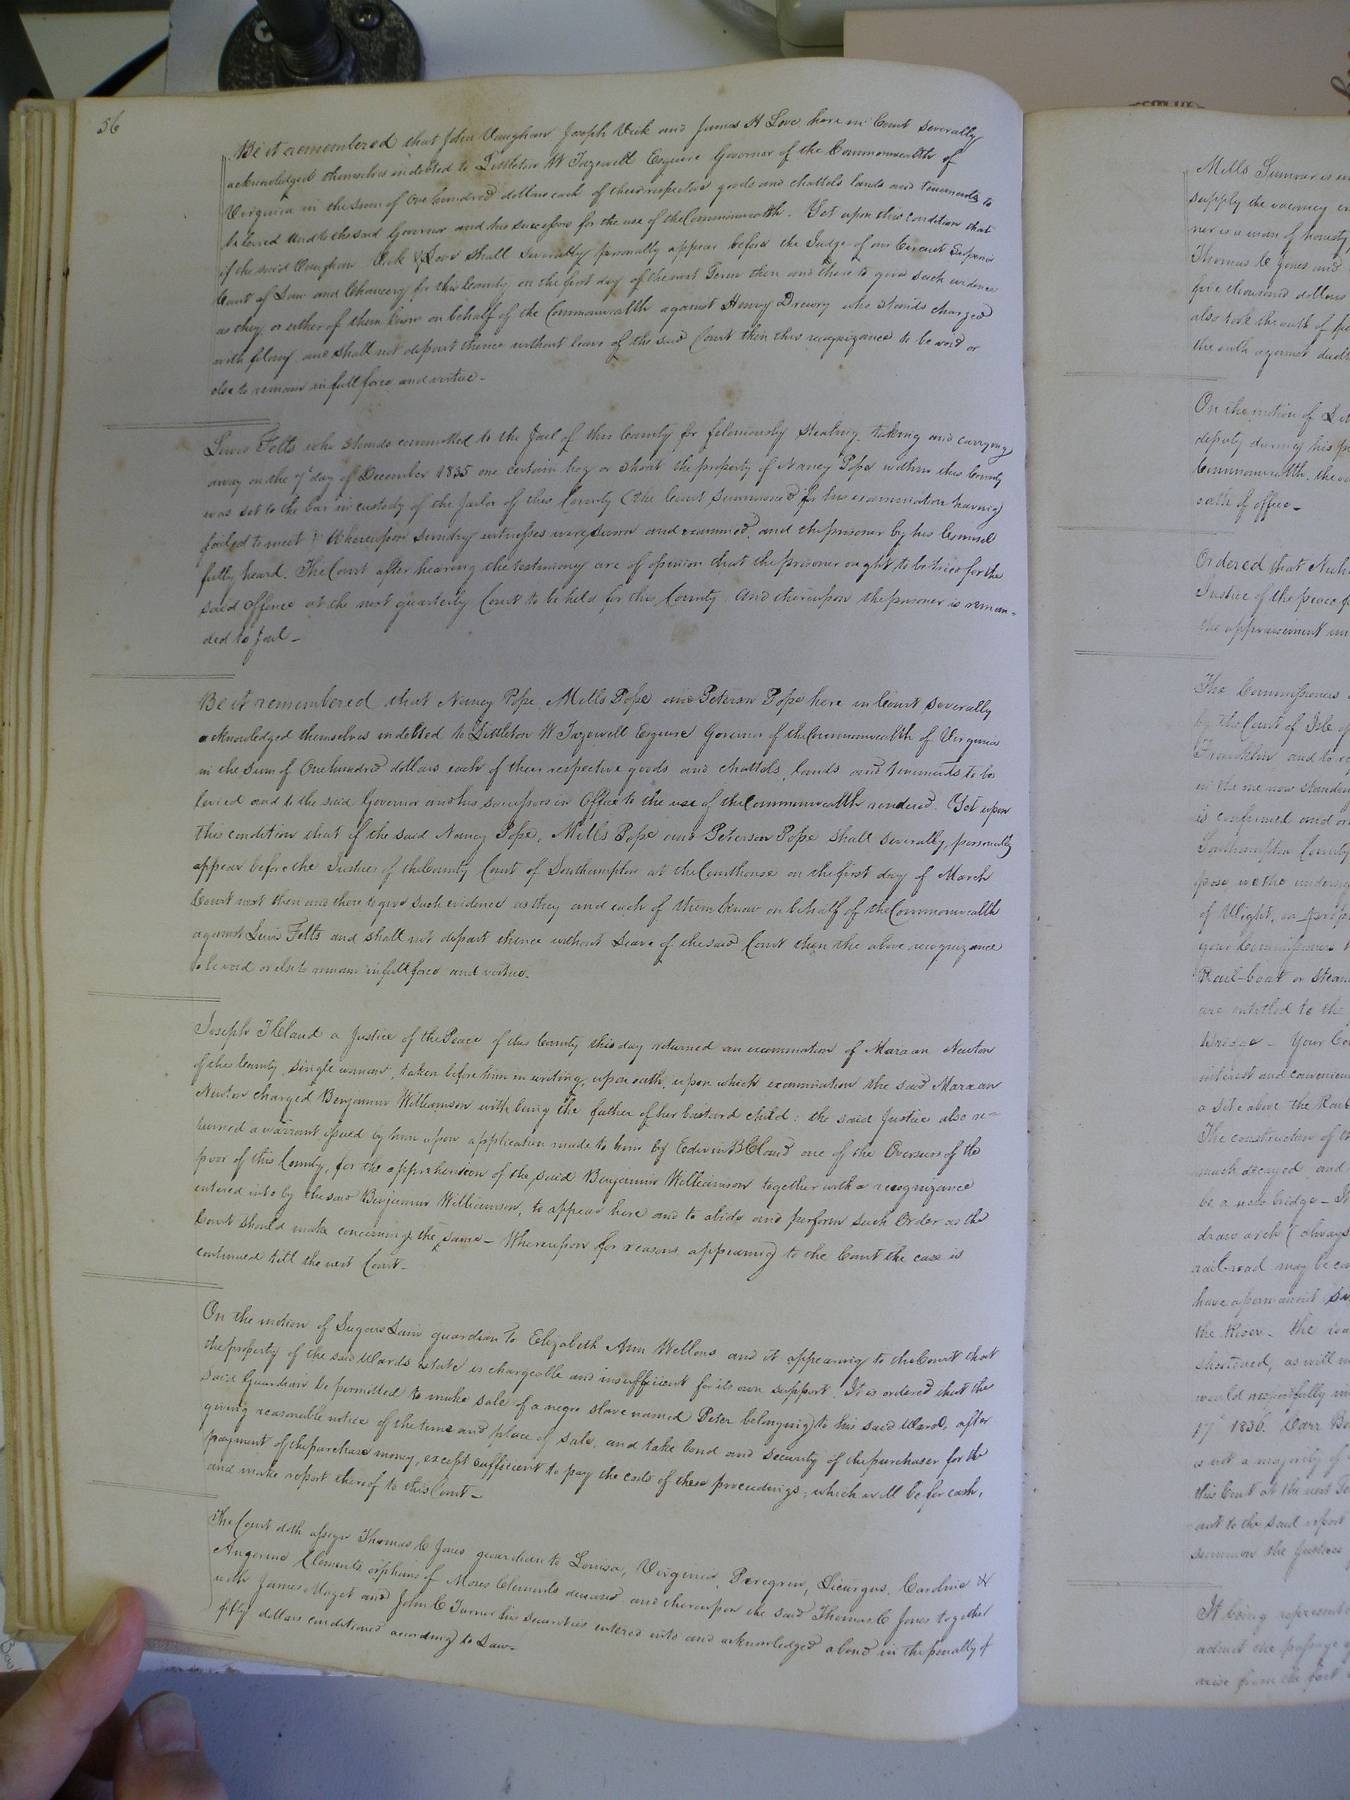 56
Be it remembered that John Vaughan Joseph Vick and James H Love here in Court severally
acknowledged themselves indebted to Littleton W Tazewell Esquire Governor of the Commonwealth of
Virginia in the sum of One hundred dollars each of their respective goods and chattels lands and tenements to
be levied and to the said Governor and his successors for the use of the Commonwealth. Yet upon this condition that
if the said Vaughan Vick & Love shall severally personally appear before the Judge of our Circuit Superior
Court of Law and Chancery for this County on the first day of the next Term then and there to give such evidence
as they or either of them know on behalf of the Commonwealth against Henry Drewry who stands charged
with felony and shall not depart thence without leave of the said Court then this recognizance to be void or
else to remain in full force and virtue-
Lewis Felts who stands committed to the Jail of this County for feloniously stealing, taking and carrying
away on the 7 day of December 1835 one certain hog or shoat the property of Nancy Pope within this County
was set to the bar in custody of the Jailor of this County (the Court summoned for his examination having
failed to meet) Whereupon sundry witnesses were sworn and examined, and the prisoner by his Counsel
fully heard. The Court after hearing the testimony are of opinion that the prisoner ought to be tried for the
said offence at the next quarterly Court to be held for this County. And thereupon the prisoner is reman-
ded to Jail-
Be it remembered that Nancy Pope, Mills Pope and Peterson Pope here in Court severally
acknowledged themselves indebted to Littleton W Tazewell Esquire Governor of the Commonwealth of Virginia
in the sum of One hundred dollars each of their respective goods and chattels, lands and tenements to be
levied and to the said Governor and his successors in Office to the use of the Commonwealth rendered. Yet upon
this condition that if the said Nancy Pope, Mills Pope and Peterson Pope shall severally, personally
appear before the Justices of the County Court of Southampton at the Courthouse on the first day of March
Court next then and there to give such evidence as they and each of them know on behalf of the Commonwealth
against Lewis Felts and shall not depart thence without leave of the said Court then the above recognizance
to be void or else to remain in full force and virtue.
Joseph T Claud a Justice of the Peace of this County this day returned an examination of Maraan Newton
of the County, single woman, taken before him in writing, upon oath, upon which examination the said Maraan
Newton charged Benjamin Williamson with being the father of her bastard child: the said Justice also re-
turned a warrant issued by him upon application made to him by Edwin B Claud one of the Overseers of the
poor of this County, for the apprehension of the said Benjamin Williamson together with a recognizance
entered into by the said Benjamin Williamson, to appear here and to abide and perform such Order as the
Court should make concerning the same- Whereupon for reasons appearing to the Court the case is
continued till the next Court-
On the motion of guardian to Elizabeth Ann Wellons and it appearing to the Court that
the property of the said Wards estate is chargeable and insufficient for its own support. It is ordered that the
said Guardian be permitted to make sale of a negro slave named Peter belonging to his said Ward, after
giving reasonable notice of the time and place of sale, and take bond and security of the purchaser for the
payment of the purchase money, except sufficient to pay the costs of these proceedings; which will be for cash,
and make report thereof to this Court-
The Court doth assign Thomas C Jones guardian to Louisa, Virginia, Peregrin, Licurgus, Caroline &
Angerine Clements orphans of Moses Clements deceased and thereupon the said Thomas C Jones together
with James Maget and John C Turner his securities entered into and acknowledged a bond in the penalty of
fifty dollars conditioned according to Law-
Mills Sumner is
supply the vacancy
ner is a man of honesty
Thomas C Jones and
five thousand dollars
also took the oath of
the oath against
On the motion of
deputy during his
Commonwealth, the
oath of office-
Ordered that
Justice of the peace
the appraisement
The Commissioners
by the Court of Isle of
Franklin and to
in the one now standing
is confirmed and
Southampton County
pose, we the
of Wight,
your Commissioners
Rail-boat or Steam
are entitled to the
bridge- Your
interest and convenience
a site above the Rail
The construction of
much decayed and
be a new bridge- 
draw arch (always
rail-road may be
have a permanent
the River- the
shortened, as will
would respectfully
17 1836.
is not a majority of
this Court at the next
ant to the said report
summon the Justices
It being represented
admit the passage
arise from the